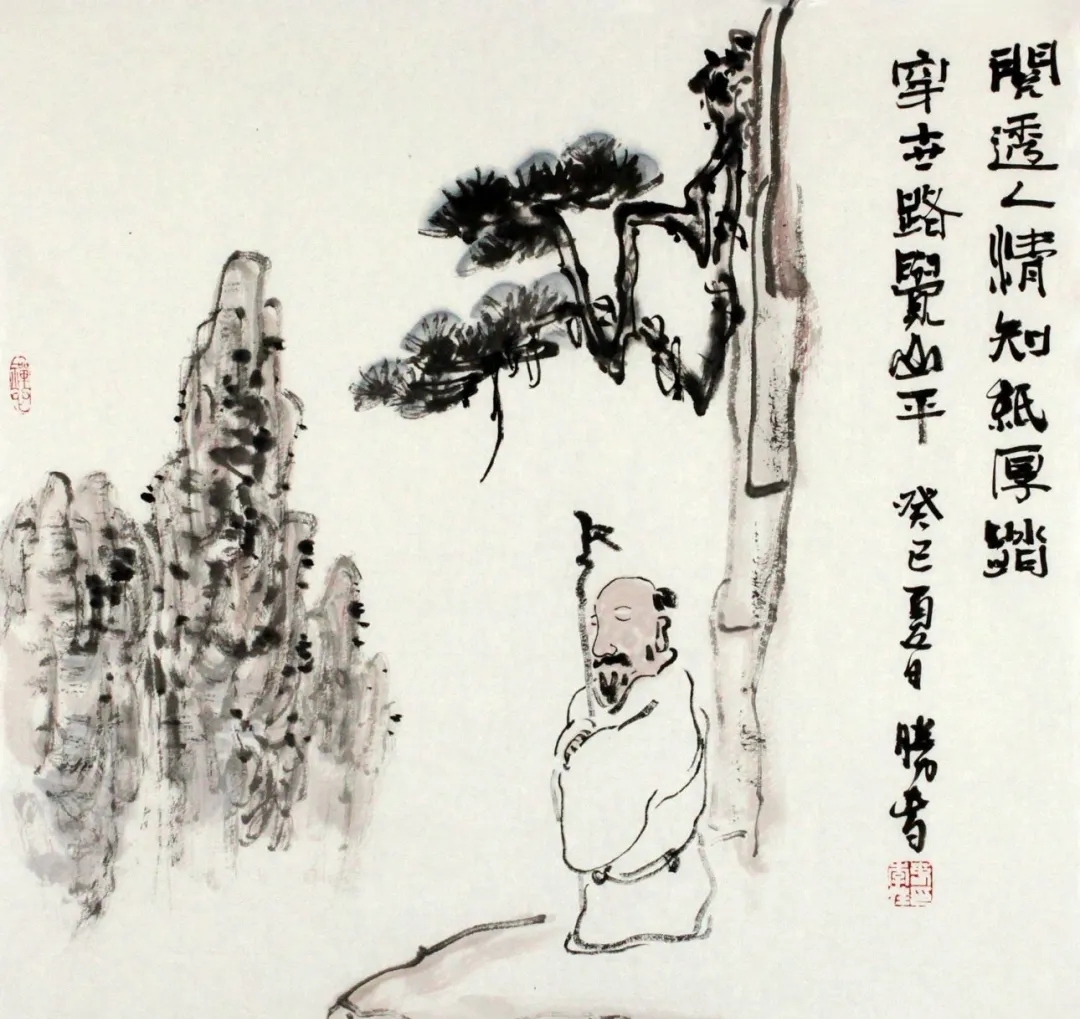 閱透人情知紙厚踏
穿世路覺山平 癸巳夏日 勝書